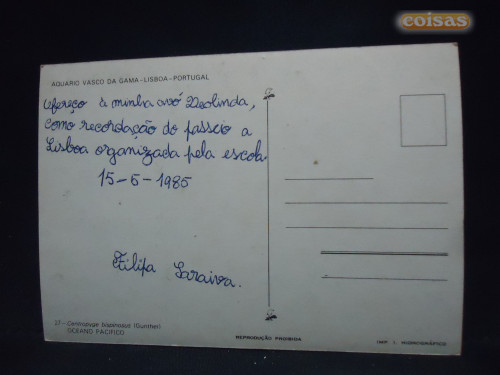 coisas
AQUARIO VASCO DA GAMA - LISBOA - PORTUGAL
Ofereço à minha avó Deolinda,
como recordação do passeio a
Lisboa organizada pela escola
15-6-1985
Filipa Saraiva.
27 - Centropyge bispinosus (Gunther)
OCEANO PACIFICO
REPRODUÇÃO PROIBIDA
IMP. I. HIDROGRÁFICO